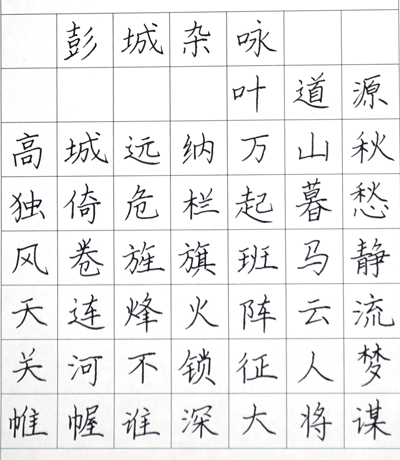 彭城杂咏
叶道源
高城远纳万山秋
独倚危栏起暮愁
风卷旌旗班马静
天连烽火阵云流
关河不锁征人梦
帷幄谁深大将谋